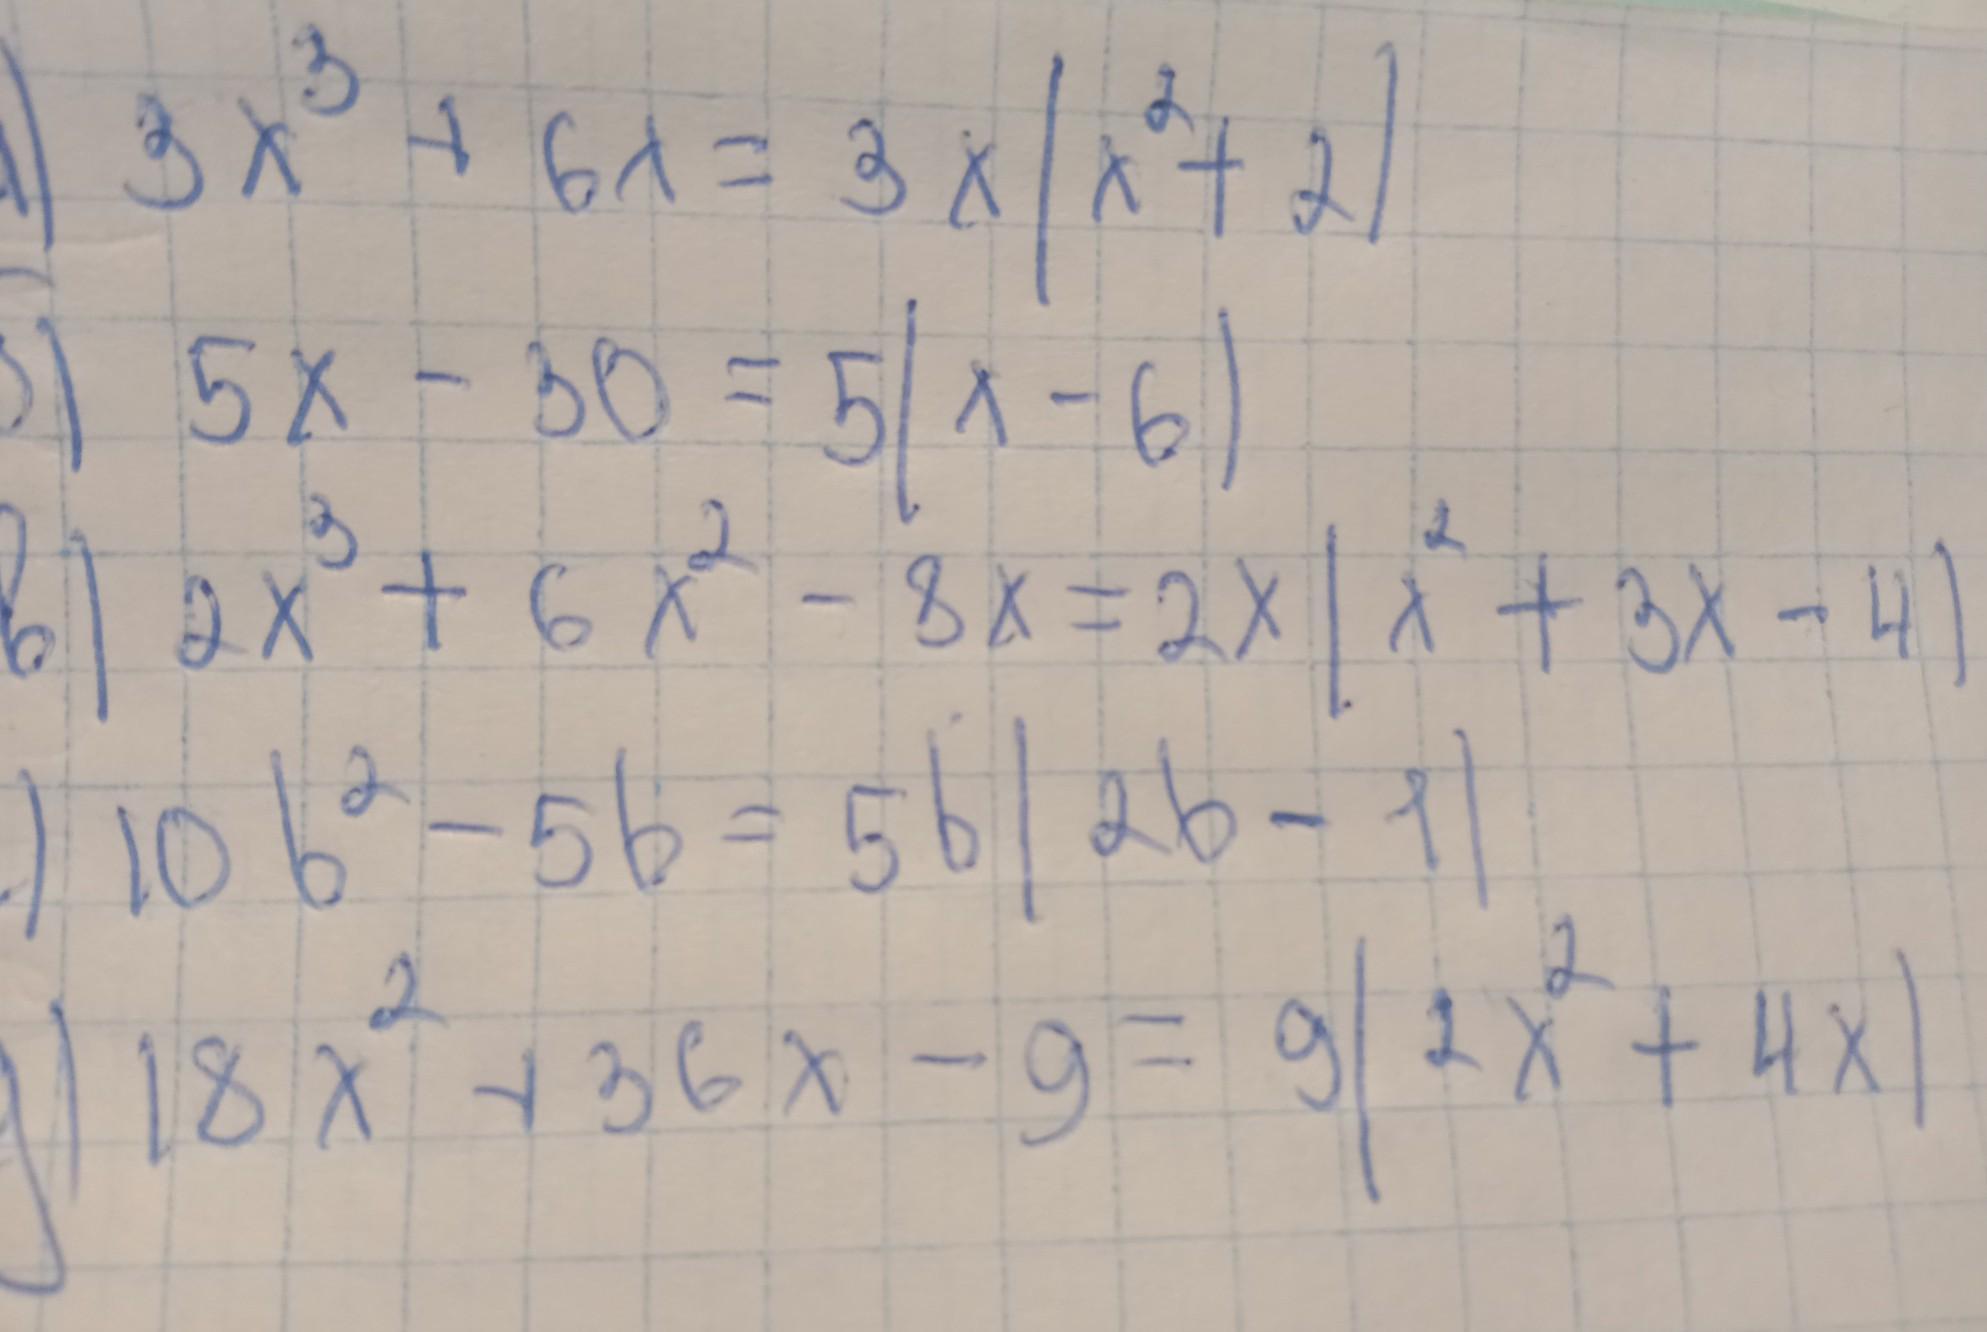 а) 3x³ + 6x = 3x(x² + 2)
б) 5x - 30 = 5(x - 6)
в) 2x³ + 6x² - 8x = 2x(x² + 3x - 4)
) 10b² - 5b = 5b(2b - 1)
д) 18x² + 36x - 9 = 9(2x² + 4x)